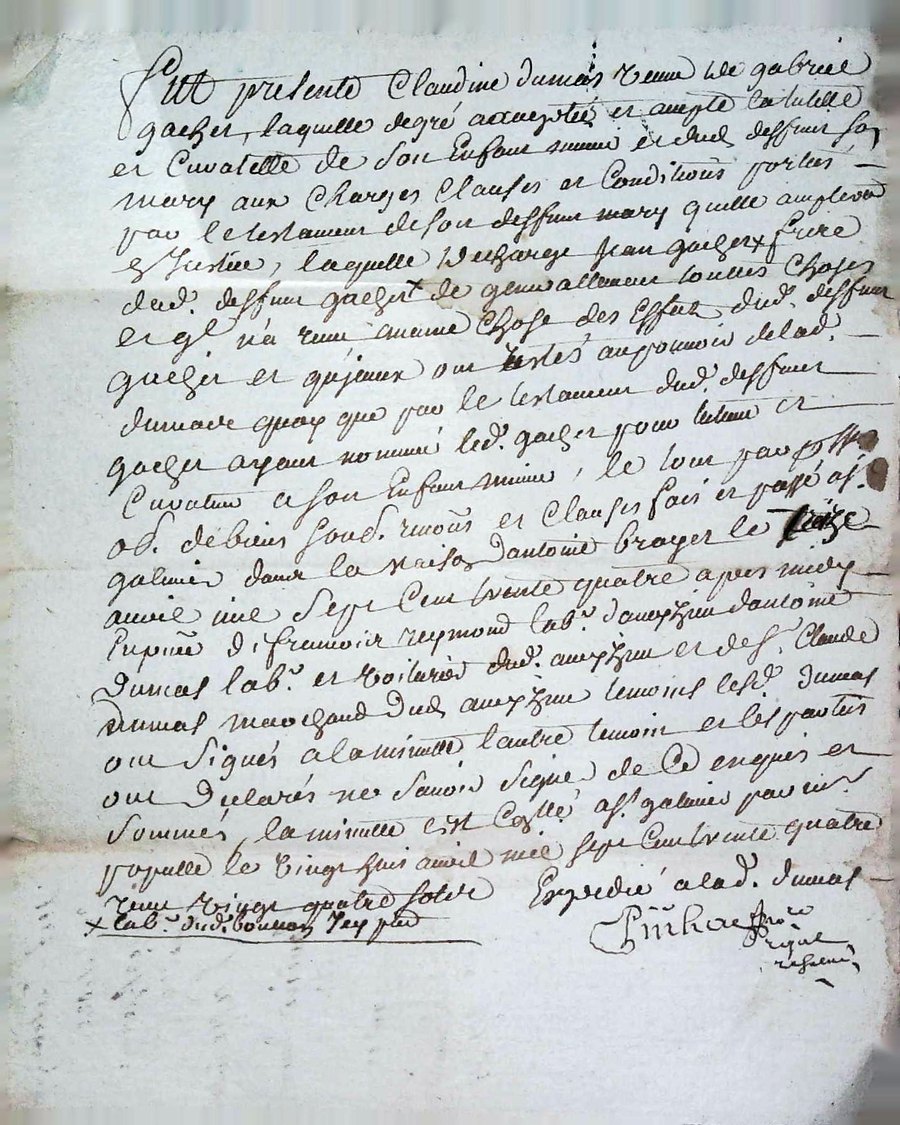 Fut presente Claudine dumas veuve de gabriel
gacher, laquelle degré a acceptée et accepte la tutelle
et Curatelle de son Enfant mineur et dud deffunt son
mary aux Charges Clauses et Conditions portés
par le testament de son deffunt mary quelle
en Justice, laquelle decharge Jean gacher x frere
dud. deffunt gacher de generallement touttes choses
et ql n'a retenu aucune chose des Effets dud. deffunt
gacher et qu'jceux ont restés au pouvoir de lad.
dumas quoy que par le testament dud. deffunt
gacher ayant nommé led. gacher pour tuteur et
Curateur a son Enfant mineur, le tout par
ob. de biens soud. renons et Clauses fais et passé a st.
galmier dans la maison d'antoine broyer le treize
avril mil sept Cent trente quatre apres midy
En pnce de francois reymond lab.r d'aveyzieu d'antoine
Dumas lab.r et voiturier dud. aveyzieu et de s.r Claude
Dumas marchand dud aveyzieu temoins lesd. dumas
ont signés a la minutte l'autre temoin et les parties
ont declarés ne savoir signer de Ce enquis et
sommés, la minutte est Conllée a st galmier par
populle le vingt huit avril mil sept Cent trente quatre
reçu vingt quatre solde Expedié a lad. dumas
x lab.r dud. bourg
No.re
royal